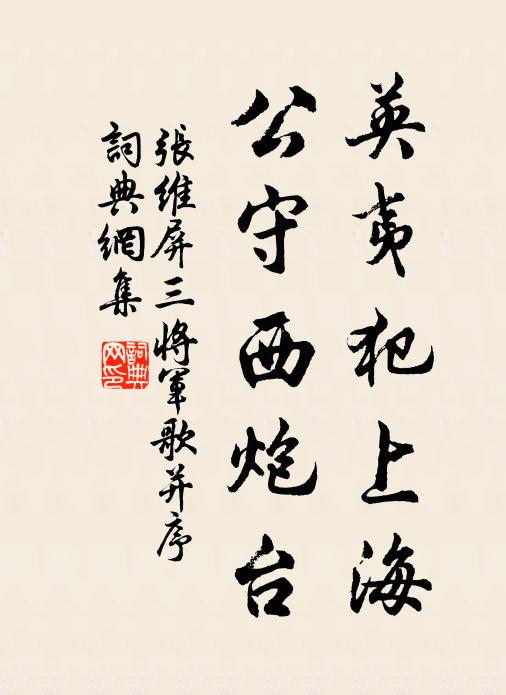 英夷犯上海
公守西炮台
張維屏三將軍歌并序
詞典網集
詞典網印